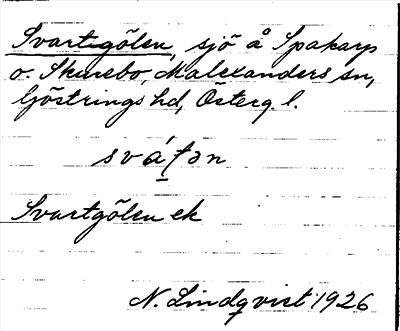 Svartgölen, sjö å Spakarp
o. Skurebo, Malexanders sn,
Göstrings hd, Österg. l.
Svartgölen ek
N. Lindqvist 1926